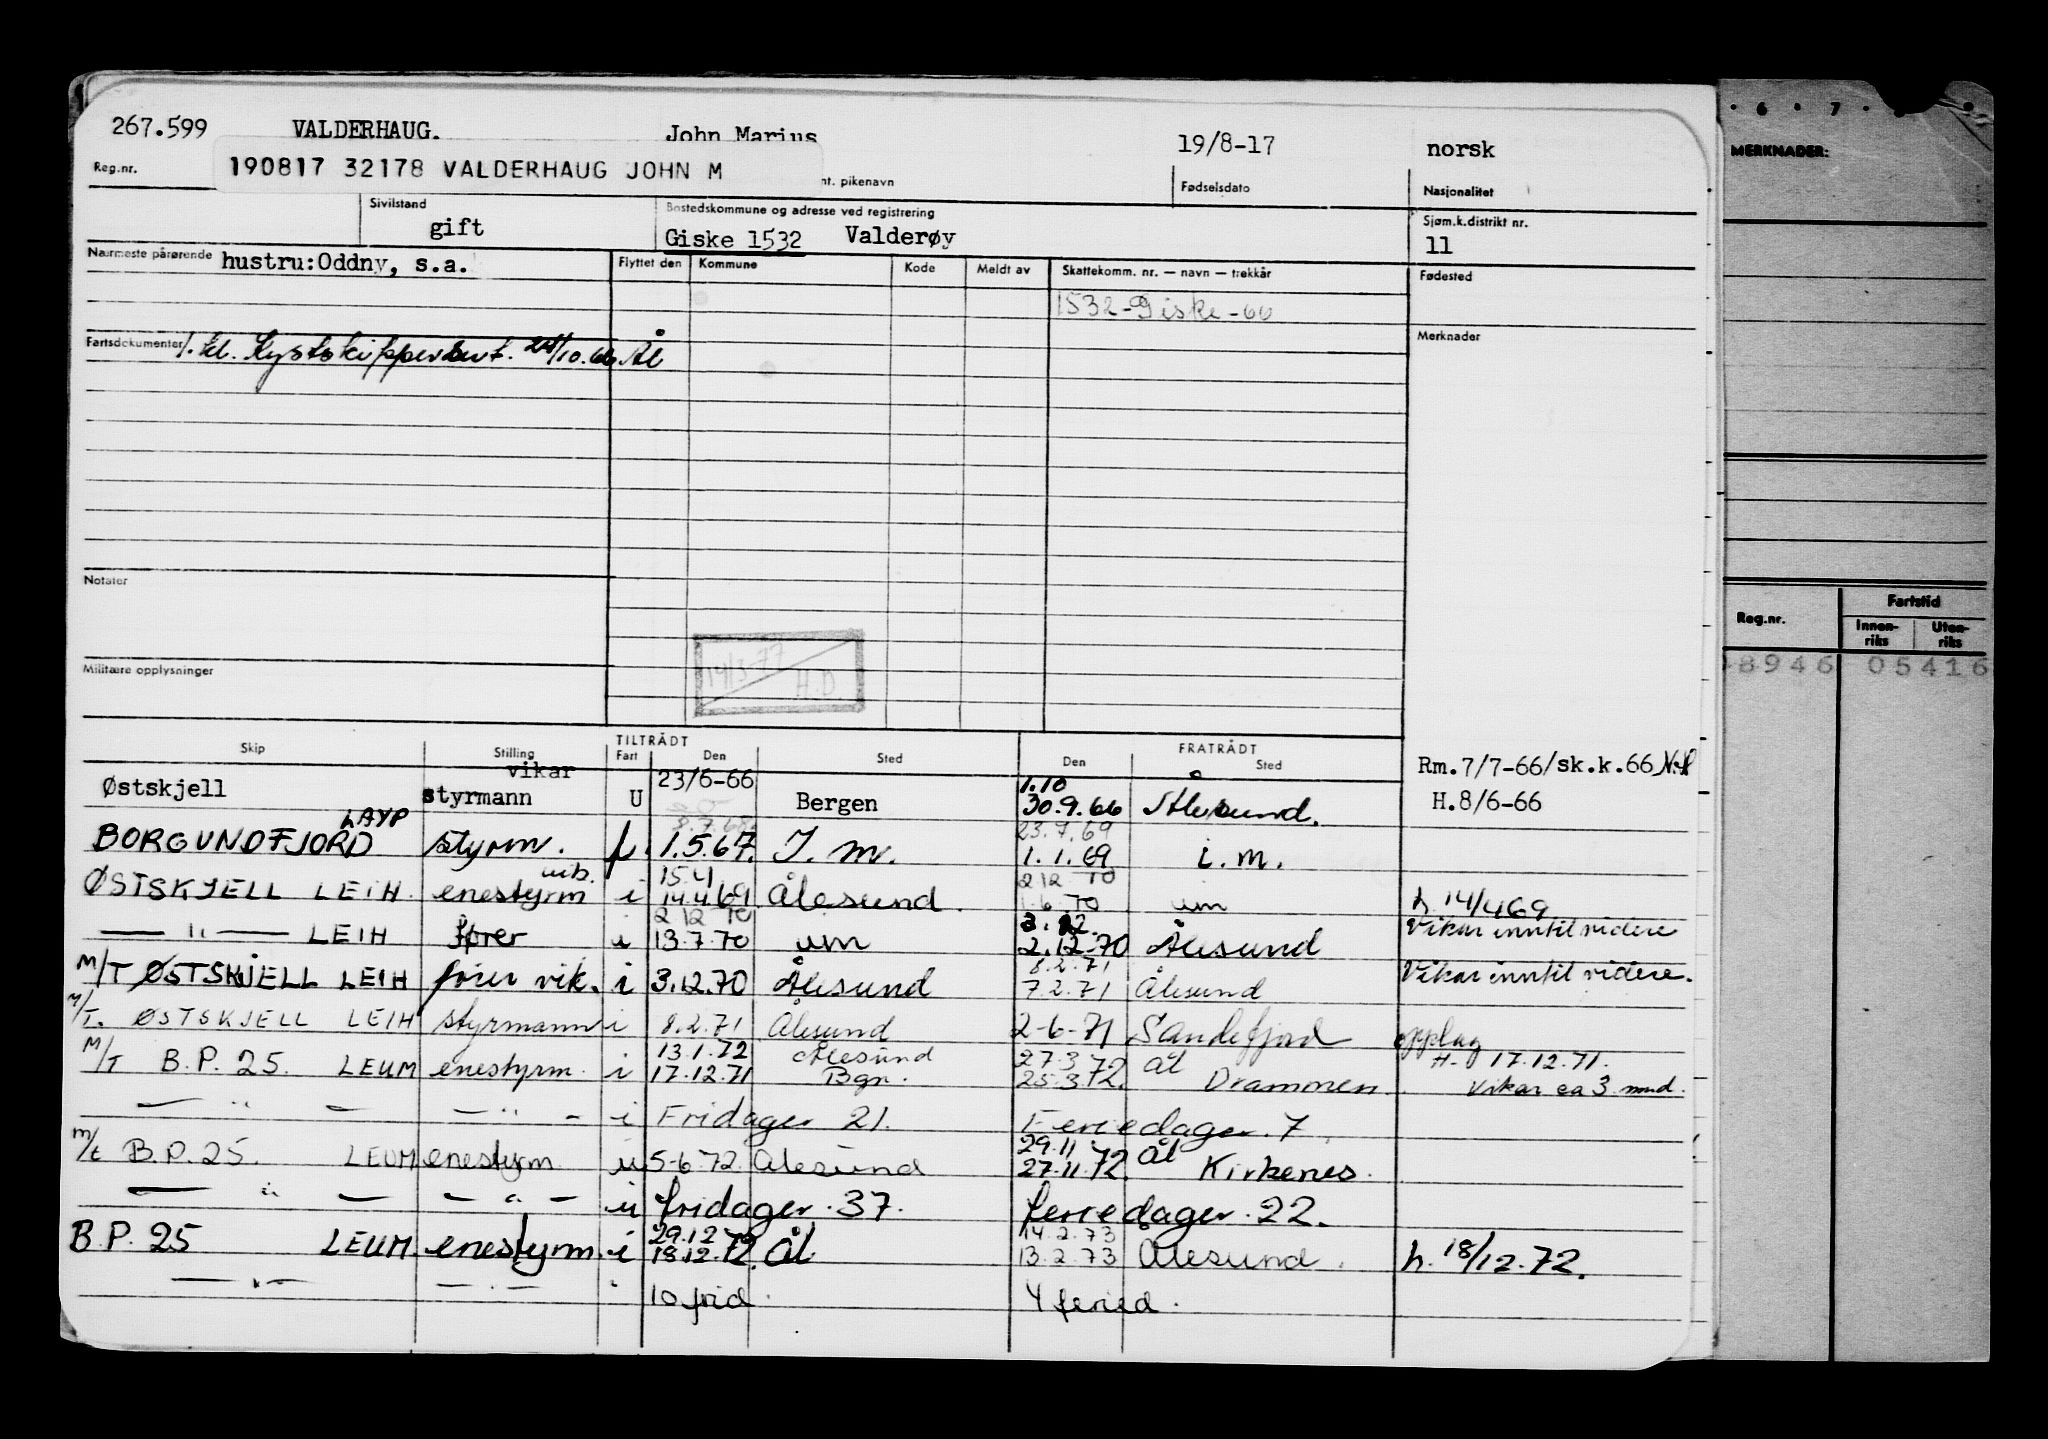 267.599 VALDERHAUG. John Marius 19/8-17 norsk
Reg.nr. 190817 32178 VALDERHAUG JOHN M nt. pikenavn Fødselsdato Nasjonalitet
Sivilstand Bostedskommune og adresse ved registrering Sjøm.k.distrikt nr.
gift Giske 1532 Valderøy 11
Nærmeste pårørende hustru:Oddny, s.a. Flyttet den Kommune Kode Meldt av Skattekomm. nr. — navn — trekkår Fødested
1532-Giske-60
Fartsdokumenter 1. kl. Kystskippersert. /10.66 Ål Merknader
Notater
Militære opplysninger
14/3-77
H.D.
Skip Stilling TILTRÅDT Fart Den Sted FRATRÅDT Den Sted
Østskjell vikar styrmann U 23/6-66 Bergen 1.10 30.9.66 Ålesund. Rm.7/7-66/sk.k.66
H.8/6-66
BORGUNDFJORD LAYP styrm. 1.5.67. I. m. 23.7.69 1.1.69 i.m.
ØSTSKJELL LEIH. enestyrm i 15.4 14.4.69 Ålesund. 2 12 70 1.6.70 um h 14/4 69
— " — LEIH fører i 2 12 70 13.7.70 um 3.12. 2.12.70 Ålesund Vikar inntil videre
M/T ØSTSKJELL LEIH fører vik. i 3.12.70 Ålesund 8.2.71 7.2.71 Ålesund Vikar inntil videre.
M/T. ØSTSKJELL LEIH styrmann i 8.2.71 Ålesund 2-6-71 Sandefjord opplag
M/T B.P. 25. LEUM enestyrm. i 13.1.72 17.12.71 Ålesund Bgn. 27.3 72 25.3 72. ål Drammen H. 17.12.71. Vikar ca 3 mnd.
— " — — " — i Fridager 21. Feriedager. 7
m/t B.P. 25. LEUM enestyrm u 5-6.72. Ålesund 29.11 27.11.72. ål Kirkenes.
— " — — " — u fridager. 37. feriedager. 22.
B.P. 25 LEUM enestyrm. i 29.12 18.12.72. Ål 14.2.73 13.2.73 Ålesund. h. 18/12.72.
— " — — " — 10 frid. 4 feried.
6 7
MERKNADER:
Reg.nr. Fartstid
Innen-riks Uten-riks
8946 05416